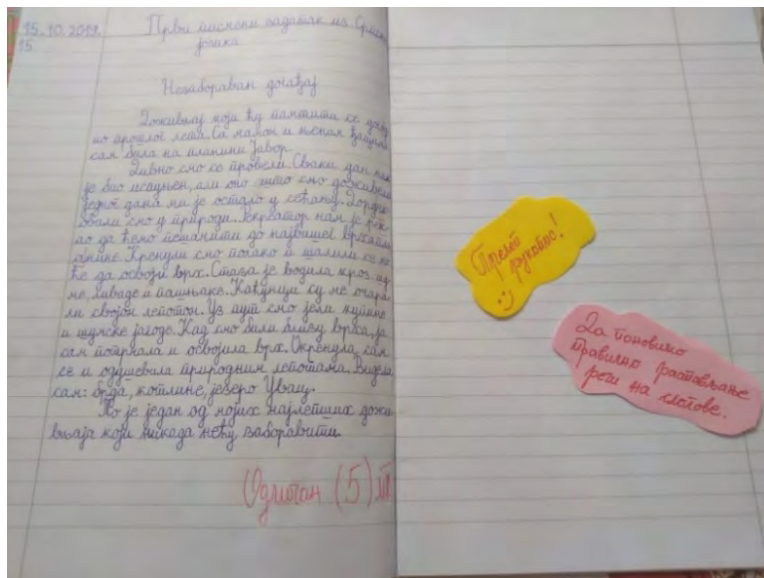 15.10.2019.
15
Први писмени задатак из Српског
језика
Незабораван догађај
Доживљај који ћу памтити се дого
ио прошлог лета. Са мамом и њеним
сам била на планини Јавор.
Дивно смо се провели. Сваки дан нам
је био испуњен, али оно што смо доживели
једног дана ми је остало у сећању. Дорučко
вали смо у природи. Рекреатор нам је рек
ао да ћемо пешачити до највишег врха пл
анине. Кренули смо полако и шалили се ко
ће да освоји врх. Стаза је водила кроз шу
ме, ливаде и пашњаке. Каћунци су ме очара
ли својом лепотом. Уз пут смо јели купине
и шумске јагоде. Кад смо били близу врха, ја
сам потрчала и освојила врх. Окренула сам
се и одушевила природним лепотама. Видела
сам: брда, котлине, језеро Увац.
То је један од мојих најлепших дожи
вљаја који никада нећу заборавити.
Одличан (5)
Прелеп
рукопис!
Да поновимо
правилно растављање
речи на слогове.